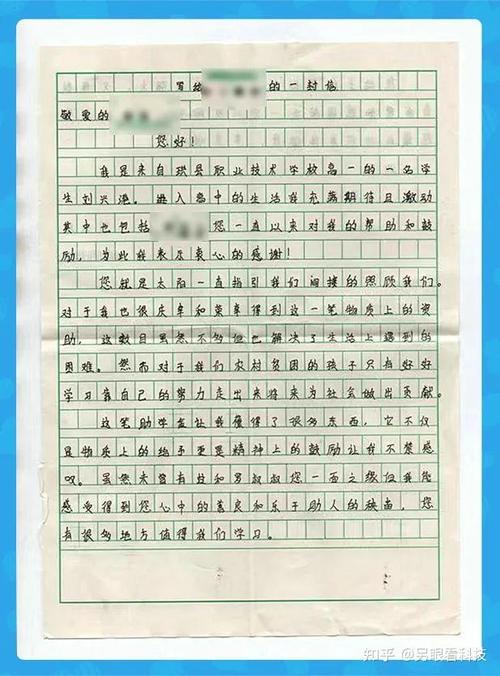 写给 的一封信
敬爱的
您好！
我是来自珙县职业技术学校高一的一名学
生刘兴滟。进入高中的生活我充满期待且激动
其中也包括 您一直以来对我的帮助和鼓
励，为此我表示衷心的感谢！
您就是太阳一直指引我们间接的照顾我们。
对于我也很庆幸和荣幸得到这一笔物质上的资
助，这数目虽然不够但也解决了生活上遇到的
困难。然而对于我们农村贫困的孩子只有好好
学习靠自己的努力走出来将来为社会做出贡献。
这笔助学金让我獲得了很多东西，它不仅
是物质上的给予更是精神上的鼓励让我不禁感
叹。虽然未曾有 和 叔叔您一面之缘但我能
感受得到您心中的善良和乐于助人的 ，您
有很多地方值得我们学习。
知乎 @另眼看科技